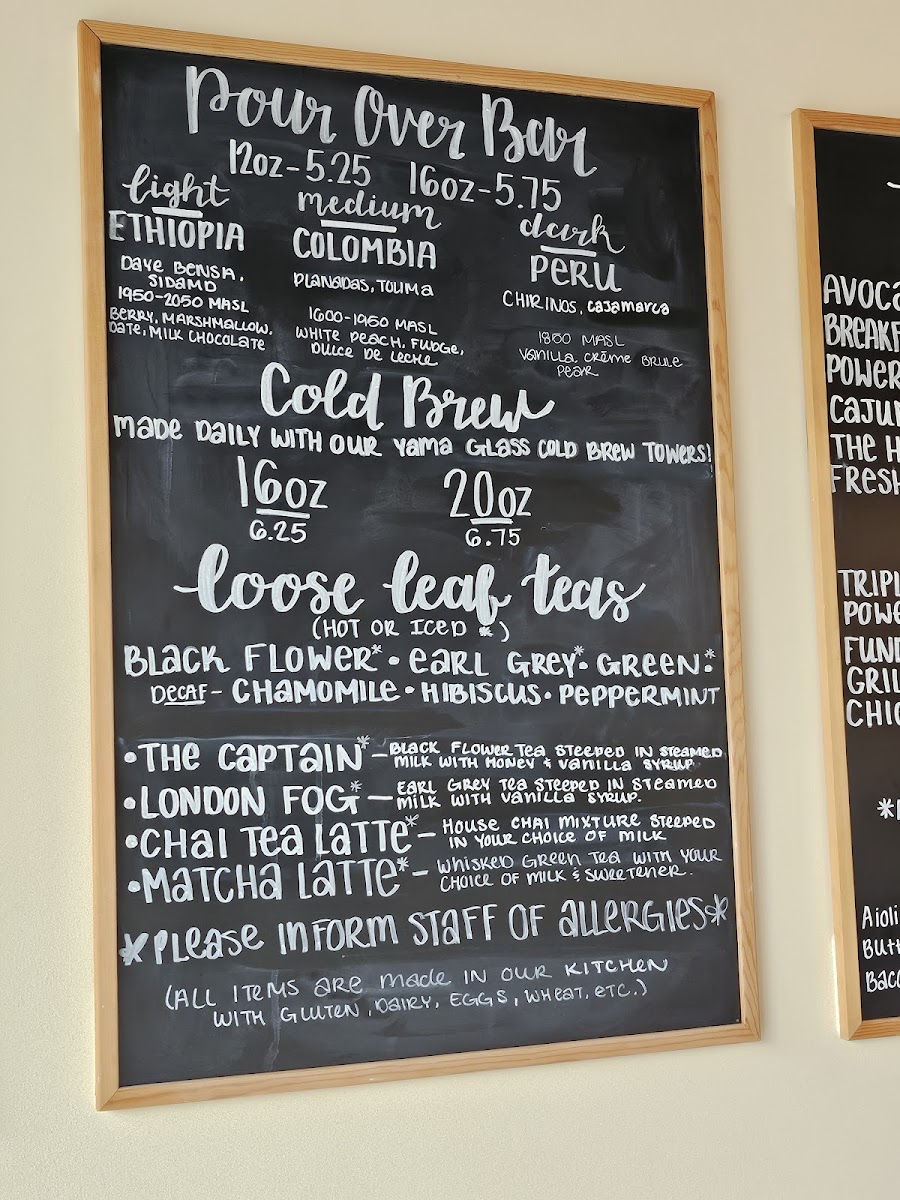 Pour Over Bar
12oz-5.25 16oz-5.75
light
ETHIOPIA
Daye BENSA,
SIDAMO
1950-2050 MASL
BERRY, MARSHMALLOW,
DATE, MILK CHOCOLATE
medium
COLOMBIA
PLANADAS, TOLIMA
1600-1950 MASL
WHITE PEACH, FUDGE,
DULCE DE LECHE
dark
PERU
CHIRINOS, Cajamarca
1800 MASL
VANILLA, CRÈME BRULE
PEAR
Cold Brew
MADE DAILY WITH OUR Yama GLASS COLD BREW TOWERS!
16oz 20oz
6.25 6.75
loose leaf teas
(HOT OR ICED *)
BLACK FLOWER* • EARL GREY* • GREEN •*
DECAF - CHAMOMILE • HIBISCUS • PEPPERMINT
• THE CAPTAIN* - BLACK FLOWER TEA STEEPED IN STEAMED
MILK WITH HONEY & VANILLA SYRUP
• LONDON FOG* - EARL GREY TEA STEEPED IN STEAMED
MILK WITH VANILLA SYRUP.
• CHAI TEA LATTE* - HOUSE CHAI MIXTURE STEEPED
IN YOUR CHOICE OF MILK
• MATCHA LATTE* - WHISKED GREEN TEA WITH YOUR
CHOICE OF MILK & SWEETENER.
*PLEASE INFORM STAFF OF ALLERGIES*
(ALL ITEMS ARE MADE IN OUR KITCHEN
WITH GLUTEN, DAIRY, EGGS, WHEAT, ETC.)
AVOCA
BREAKF
POWER
CAJUN
THE H
FRESH
TRIPL
POWE
FUND
GRIL
CHIC
Aioli
Butt
Baco